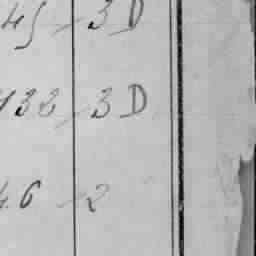 45 - 3 D
132 - 3 D
46 - 2